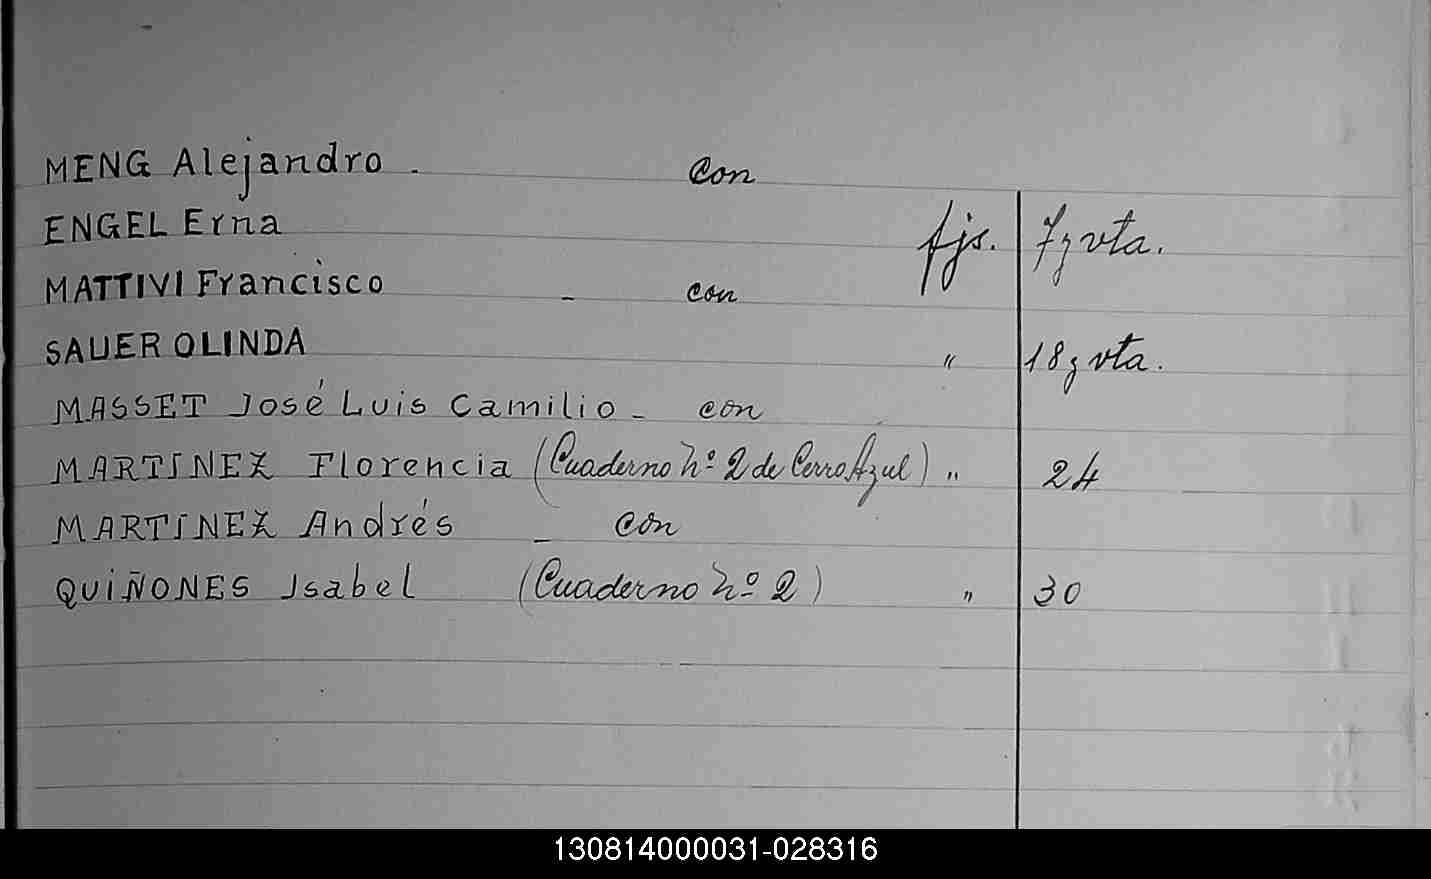 MENG Alejandro . con
ENGEL Erna fjs. 7 y vta.
MATTIVI Francisco - con
SAUER OLINDA " 18 y vta.
MASSET José Luis Camilio - con
MARTINEZ Florencia (Cuaderno nº 2 de Cerro Azul) " 24
MARTINEZ Andrés - con
QUIÑONES Isabel (Cuaderno nº 2) " 30
130814000031-028316